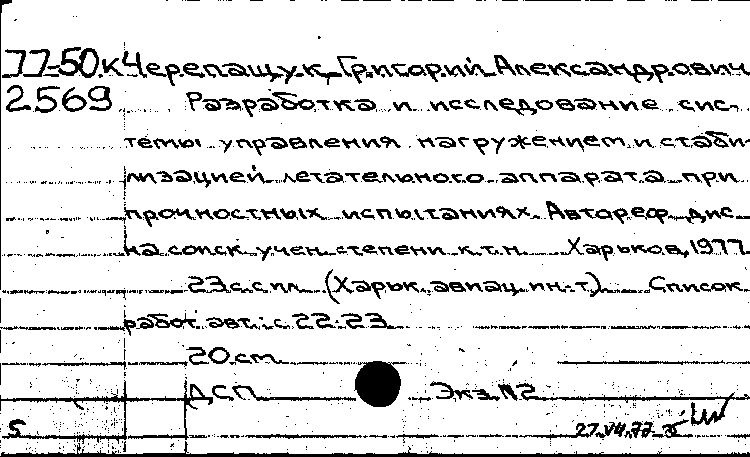 77-50.к Черепащук, Григорий Александрович
2569 Разработка и исследование сис-
темы управления нагружением и стаби-
лизацией летательного аппарата при
прочностных испытаниях. Автореф. дис.
на соиск. учен. степени к.т.н. Харьков, 1977
23с. с пл. (Харьк. авиац. ин-т). Список
работ авт.: с.22-23
20см.
ДСП Экз. №2
5